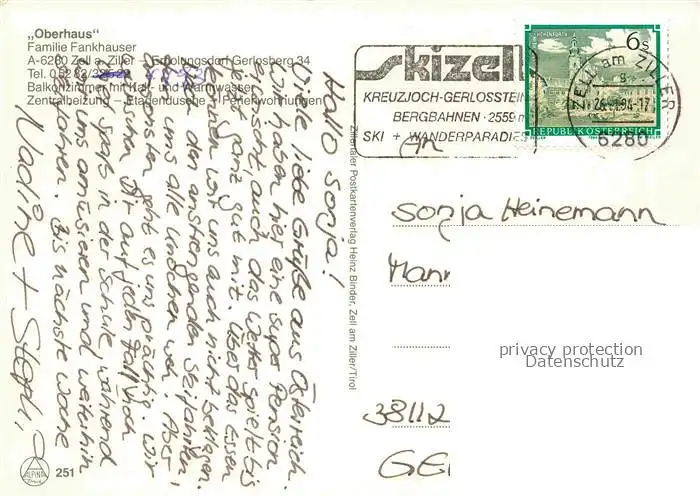 „Oberhaus"
Familie Fankhauser
A-6280 Zell a. Ziller - Erholungsdorf Gerlosberg 34
Tel. 05282/
Balkonzimmer mit Kalt- und Warmwasser
Zentralheizung - Etagendusche - Ferienwohnungen
Hallo Sonja!
Viele liebe Grüße aus Österreich.
Wir haben hier eine super Pension
erwischt, auch das Wetter spielt bis
jetzt ganz gut mit. Über das Essen
können wir uns auch nicht beklagen.
Nach den anstrengenden Skifahrten,
tut uns alle Knochen weh. Aber
ansonsten geht es uns prächtig. Wir
wünschen Dir auf jeden Fall noch
viel Spaß in der Schule, während
wir uns amüsieren und weiterhin
Skifahren. Bis nächste Woche
Nadine + Steph.
Zillertaler Postkartenverlag Heinz Binder, Zell am Ziller/Tirol
ALPINA
Druck
251
skizell
KREUZJOCH-GERLOSSTEIN
BERGBAHNEN · 2559 m
SKI + WANDERPARADIES
HOHENFURTH
6 S
REPUBLIK ÖSTERREICH
ZELL am ZILLER
6280
An
Sonja Heinemann
38112
privacy protection
Datenschutz